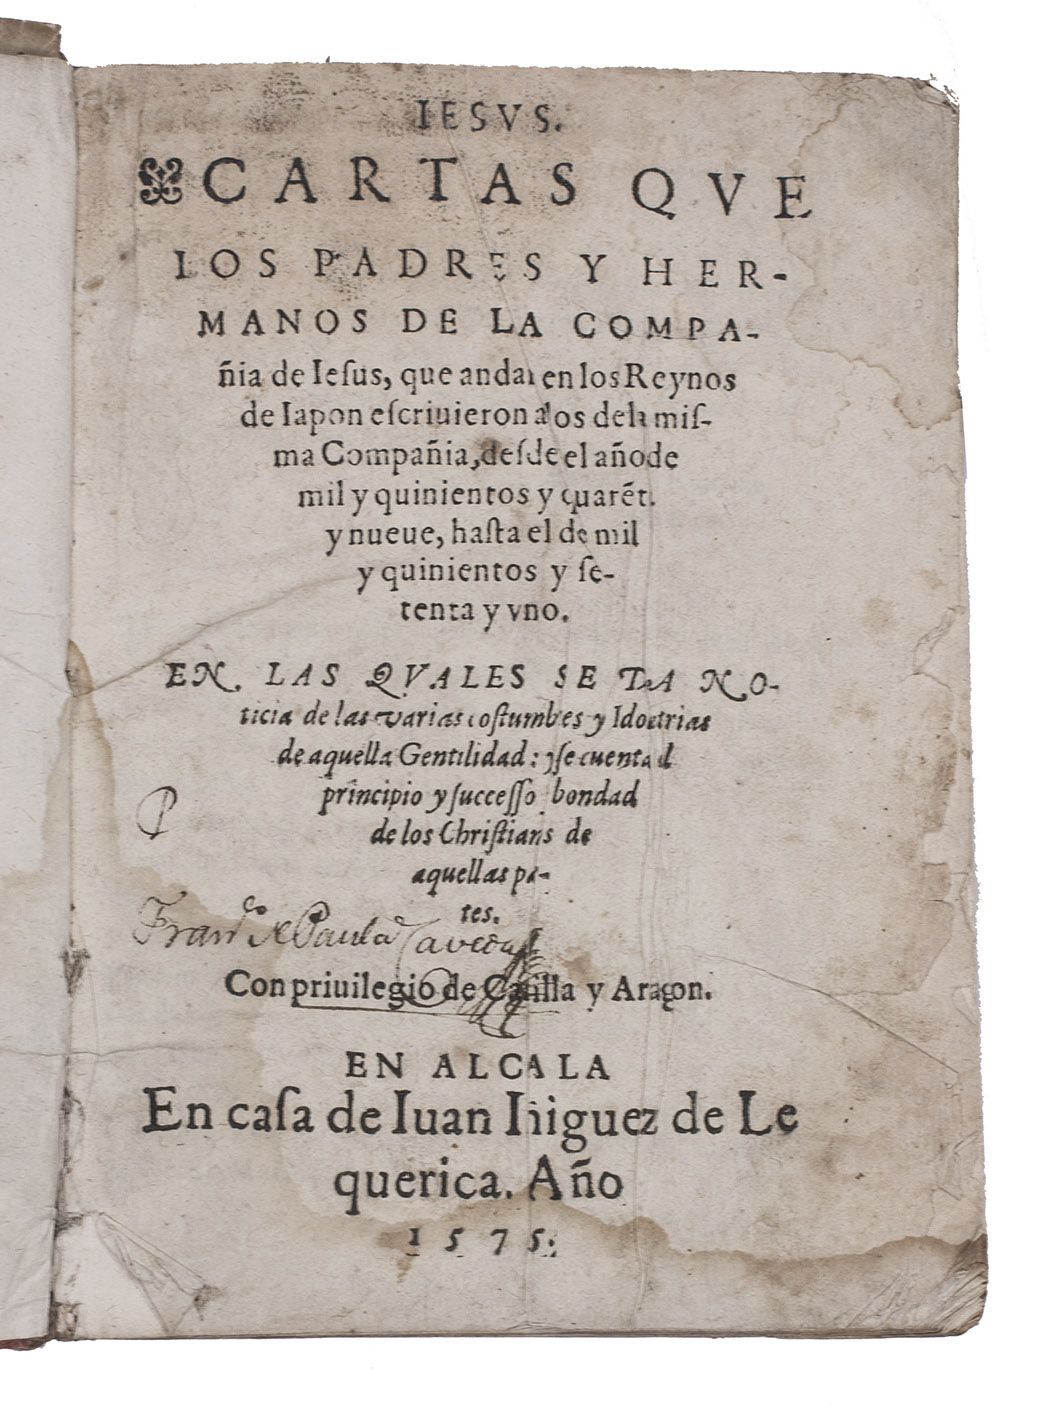 IESVS.
CARTAS QVE
LOS PADRES Y HER-
MANOS DE LA COMPA-
ñia de Iesus, que andan en los Reynos
de Iapon escriuieron a los dela mis-
ma Compañia, desde el año de
mil y quinientos y quarẽt.
y nueue, hasta el de mil
y quinientos y se-
tenta y vno.
EN LAS QVALES SE DA NO-
ticia de las varias costumbes y Idoctrias
de aquella Gentilidad: y se cuenta el
principio y successo bondad
de los Christians de
aquellas pa-
tes.
P
Fran.co de Paula
Con priuilegio de Castilla y Aragon.
EN ALCALA
En casa de Iuan Iñiguez de Le
querica. Año
1575.